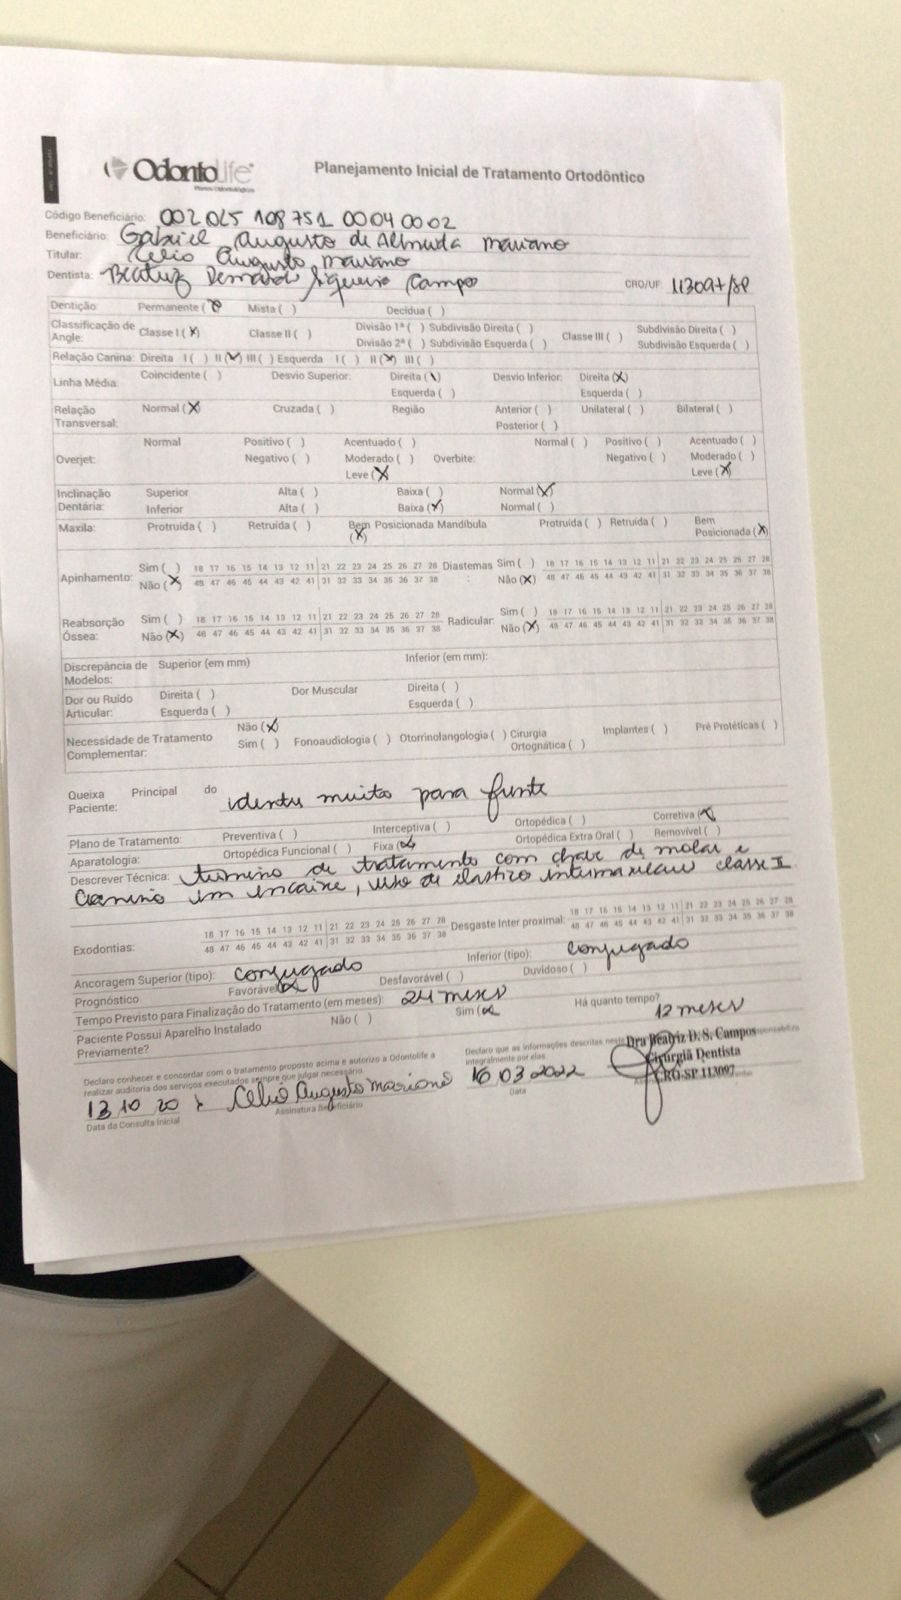 OdontoLife
Planos Odontológicos
Planejamento Inicial de Tratamento Ortodôntico
Código Beneficiário: 002 025 108 751 0004 0002
Beneficiário: Gabriel Augusto de Almeida Mariano
Titular: Célio Augusto Mariano
Dentista: Beatriz Siqueira Campos CRO/UF: 113097/SP
Dentição: Permanente (X) Mista ( ) Decídua ( )
Classificação de Angle: Classe I (X) Classe II ( ) Divisão 1ª ( ) Subdivisão Direita ( ) Classe III ( ) Subdivisão Direita ( )
Divisão 2ª ( ) Subdivisão Esquerda ( ) Subdivisão Esquerda ( )
Relação Canina: Direita I ( ) II (X) III ( ) Esquerda I ( ) II (X) III ( )
Linha Média: Coincidente ( ) Desvio Superior: Direita (\) Desvio Inferior: Direita (X)
Esquerda ( ) Esquerda ( )
Relação Transversal: Normal (X) Cruzada ( ) Região Anterior ( ) Unilateral ( ) Bilateral ( )
Posterior ( )
Normal Positivo ( ) Acentuado ( ) Normal ( ) Positivo ( ) Acentuado ( )
Overjet: Negativo ( ) Moderado ( ) Overbite: Negativo ( ) Moderado ( )
Leve (X) Leve (X)
Inclinação Dentária: Superior Alta ( ) Baixa ( ) Normal (X)
Inferior Alta ( ) Baixa (X) Normal ( )
Maxila: Protruída ( ) Retruída ( ) Bem Posicionada (X) Mandíbula Protruída ( ) Retruída ( ) Bem Posicionada (X)
Apinhamento: Sim ( ) 18 17 16 15 14 13 12 11 21 22 23 24 25 26 27 28 Diastemas : Sim ( ) 18 17 16 15 14 13 12 11 21 22 23 24 25 26 27 28
Não (X) 48 47 46 45 44 43 42 41 31 32 33 34 35 36 37 38 Não (X) 48 47 46 45 44 43 42 41 31 32 33 34 35 36 37 38
Reabsorção Óssea: Sim ( ) 18 17 16 15 14 13 12 11 21 22 23 24 25 26 27 28 Radicular: Sim ( ) 18 17 16 15 14 13 12 11 21 22 23 24 25 26 27 28
Não (X) 48 47 46 45 44 43 42 41 31 32 33 34 35 36 37 38 Não (X) 48 47 46 45 44 43 42 41 31 32 33 34 35 36 37 38
Discrepância de Modelos: Superior (em mm) Inferior (em mm):
Dor ou Ruído Articular: Direita ( ) Dor Muscular Direita ( )
Esquerda ( ) Esquerda ( )
Necessidade de Tratamento Complementar: Não (X)
Sim ( ) Fonoaudiologia ( ) Otorrinolangologia ( ) Cirurgia Ortognática ( ) Implantes ( ) Pré Protéticas ( )
Queixa Principal do Paciente: dentes muito para frente
Plano de Tratamento: Preventiva ( ) Interceptiva ( ) Ortopédica ( ) Corretiva (X)
Aparatologia: Ortopédica Funcional ( ) Fixa (X) Ortopédica Extra Oral ( ) Removível ( )
Descrever Técnica: termino de tratamento com chave de molar e
canino em encaixe, uso de elastico intermaxilar classe II
Exodontias: 18 17 16 15 14 13 12 11 21 22 23 24 25 26 27 28 Desgaste Inter proximal: 18 17 16 15 14 13 12 11 21 22 23 24 25 26 27 28
48 47 46 45 44 43 42 41 31 32 33 34 35 36 37 38 48 47 46 45 44 43 42 41 31 32 33 34 35 36 37 38
Ancoragem Superior (tipo): conjugado Inferior (tipo): conjugado
Prognóstico Favorável (X) Desfavorável ( ) Duvidoso ( )
Tempo Previsto para Finalização do Tratamento (em meses): 24 meses
Paciente Possui Aparelho Instalado Previamente? Não ( ) Sim (X) Há quanto tempo? 12 meses
Declaro conhecer e concordar com o tratamento proposto acima e autorizo a Odontolife a
realizar auditoria dos serviços executados sempre que julgar necessário.
Declaro que as informações descritas neste
integralmente por elas.
Dra Beatriz D. S. Campos
Cirurgiã Dentista
CRO-SP 113097
13 10 20 Célio Augusto Mariano 16 03 2022
Data da Consulta Inicial Assinatura Beneficiário Data